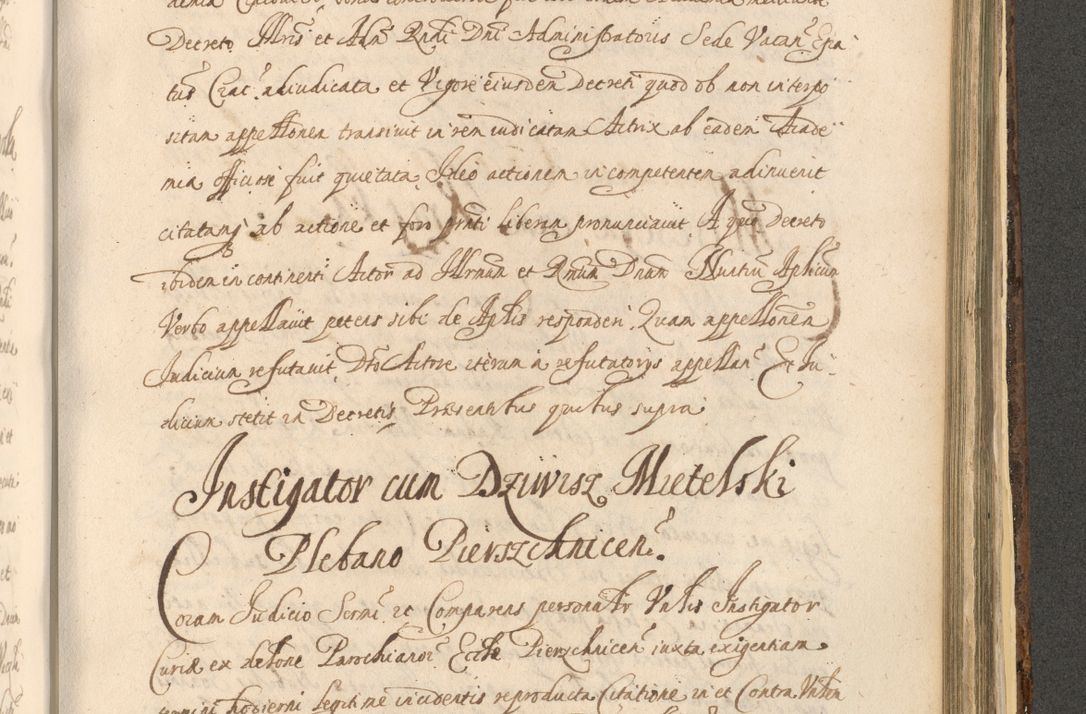 Decreto Illris et Adm Rndi Dni Administratoris Sede Vacan Epa
tus Crac adiudicata et Vigore eiusdem Decreti quod ob non interpo
sitam appellonem transivit in rem iudicatam Actrix ab eadem Acade
mia officiose fuit quietata Ideo actionem incompetentem adinvenit
citatang ab actione et foro prnti liberam pronunciavit A quo Decreto
ibidem in continenti Actor ad Illrmum et Rmum Dnum Nuntiu Aplicum
Verbo appellavit petens sibi de Aplis responderi. Quam appellonem
Judicium refutavit Dto Actore iterum a refutatorys appellan. Et Ju
dicium stetit in Decretis Præsentibus quibus supra
Instigator cum Dziwisz Mietelski
Plebano Pierszchnicen.
Coram Judicio Sermi et Comparens personatr Vnlis Instigator
Curiæ ex delone Parochianor Eccle Pierzchnicen iuxta exigentiam
termini hodierni legitime incidentis reproducta Citatione in et Contra Vnlem